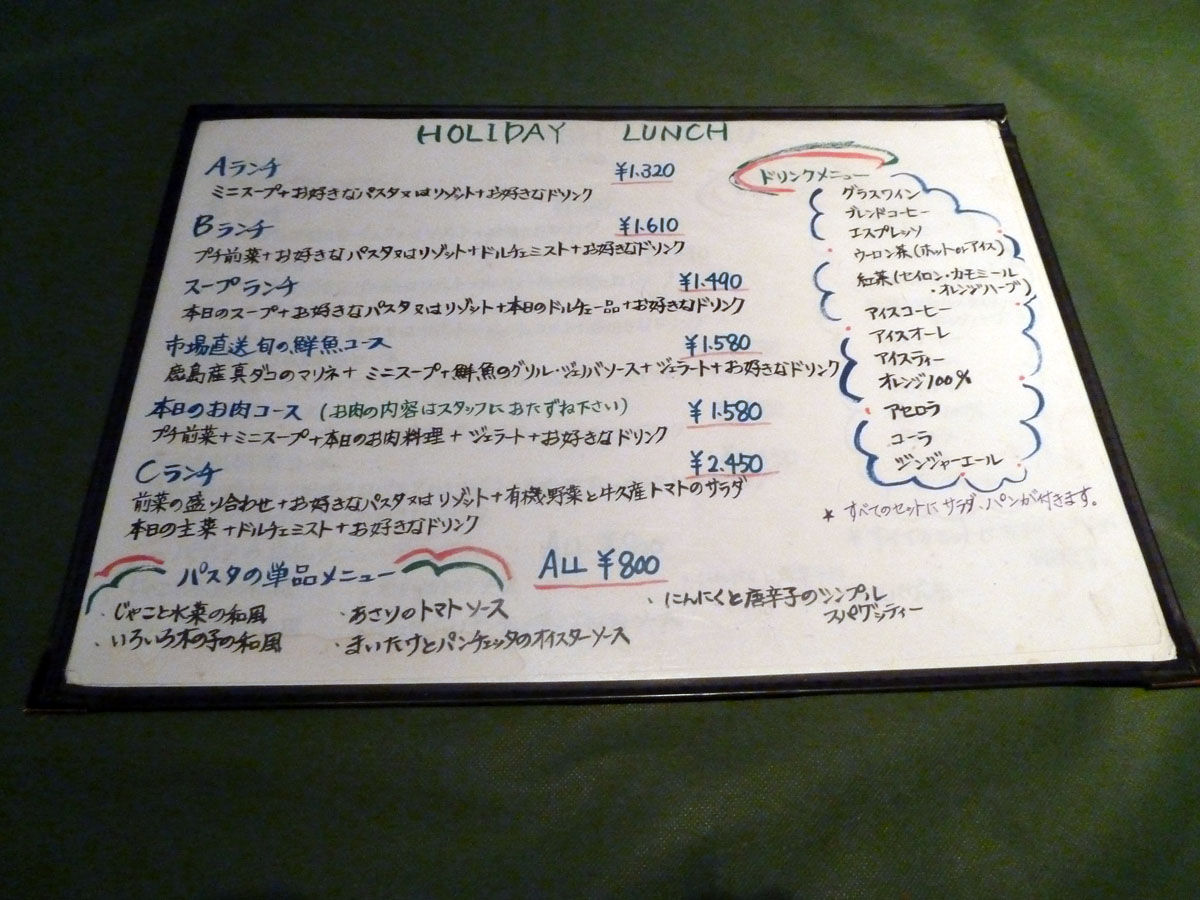 HOLIDAY LUNCH
Aランチ ¥1.320
ミニスープ+お好きなパスタ又はリゾット+お好きなドリンク
Bランチ ¥1.610
プチ前菜+お好きなパスタ又はリゾット+ドルチェミスト+お好きなドリンク
スープランチ ¥1.490
本日のスープ+お好きなパスタ又はリゾット+本日のドルチェ一品+お好きなドリンク
市場直送旬の鮮魚コース ¥1.580
鹿島産真ダコのマリネ+ミニスープ+鮮魚のグリル・ジェノバソース+ジェラート+お好きなドリンク
本日のお肉コース (お肉の内容はスタッフにおたずね下さい) ¥1.580
プチ前菜+ミニスープ+本日のお肉料理+ジェラート+お好きなドリンク
Cランチ ¥2.450
前菜の盛り合わせ+お好きなパスタ又はリゾット+有機野菜と牛久産トマトのサラダ
本日の主菜+ドルチェミスト+お好きなドリンク
パスタの単品メニュー ALL ¥800
・じゃこと水菜の和風
・いろいろ木の子の和風
・あさりのトマトソース
・まいたけとパンチェッタのオイスターソース
・にんにくと唐辛子のシンプル
スパゲッティー
ドリンクメニュー
グラスワイン
ブレンドコーヒー
エスプレッソ
ウーロン茶(ホットorアイス)
紅茶(セイロン・カモミール
・オレンジハーブ)
アイスコーヒー
アイスオーレ
アイスティー
オレンジ100%
アセロラ
コーラ
ジンジャーエール
* すべてのセットにサラダ、パンが付きます。